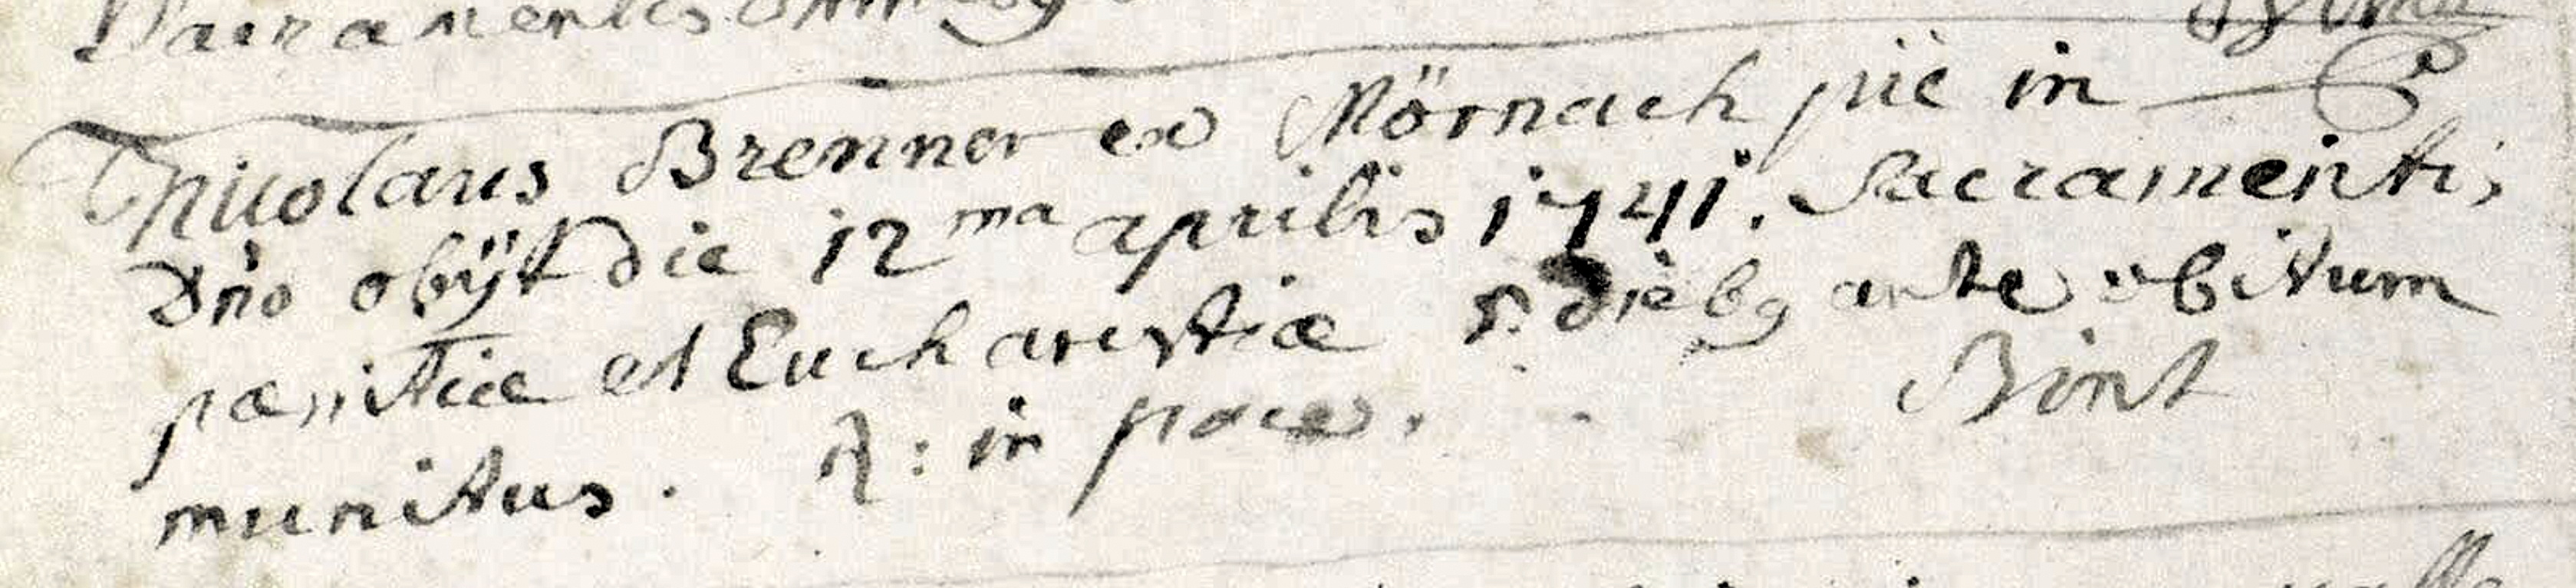 Sacramentis omnibg
Nicolaus Brenner ex Mörnach piè in
Dno obijt die 12ma aprilis 1741. Sacramentis
pænitiæ et Eucharistiæ 5. diebg ante obitum
munitus. R: in pace. Bint